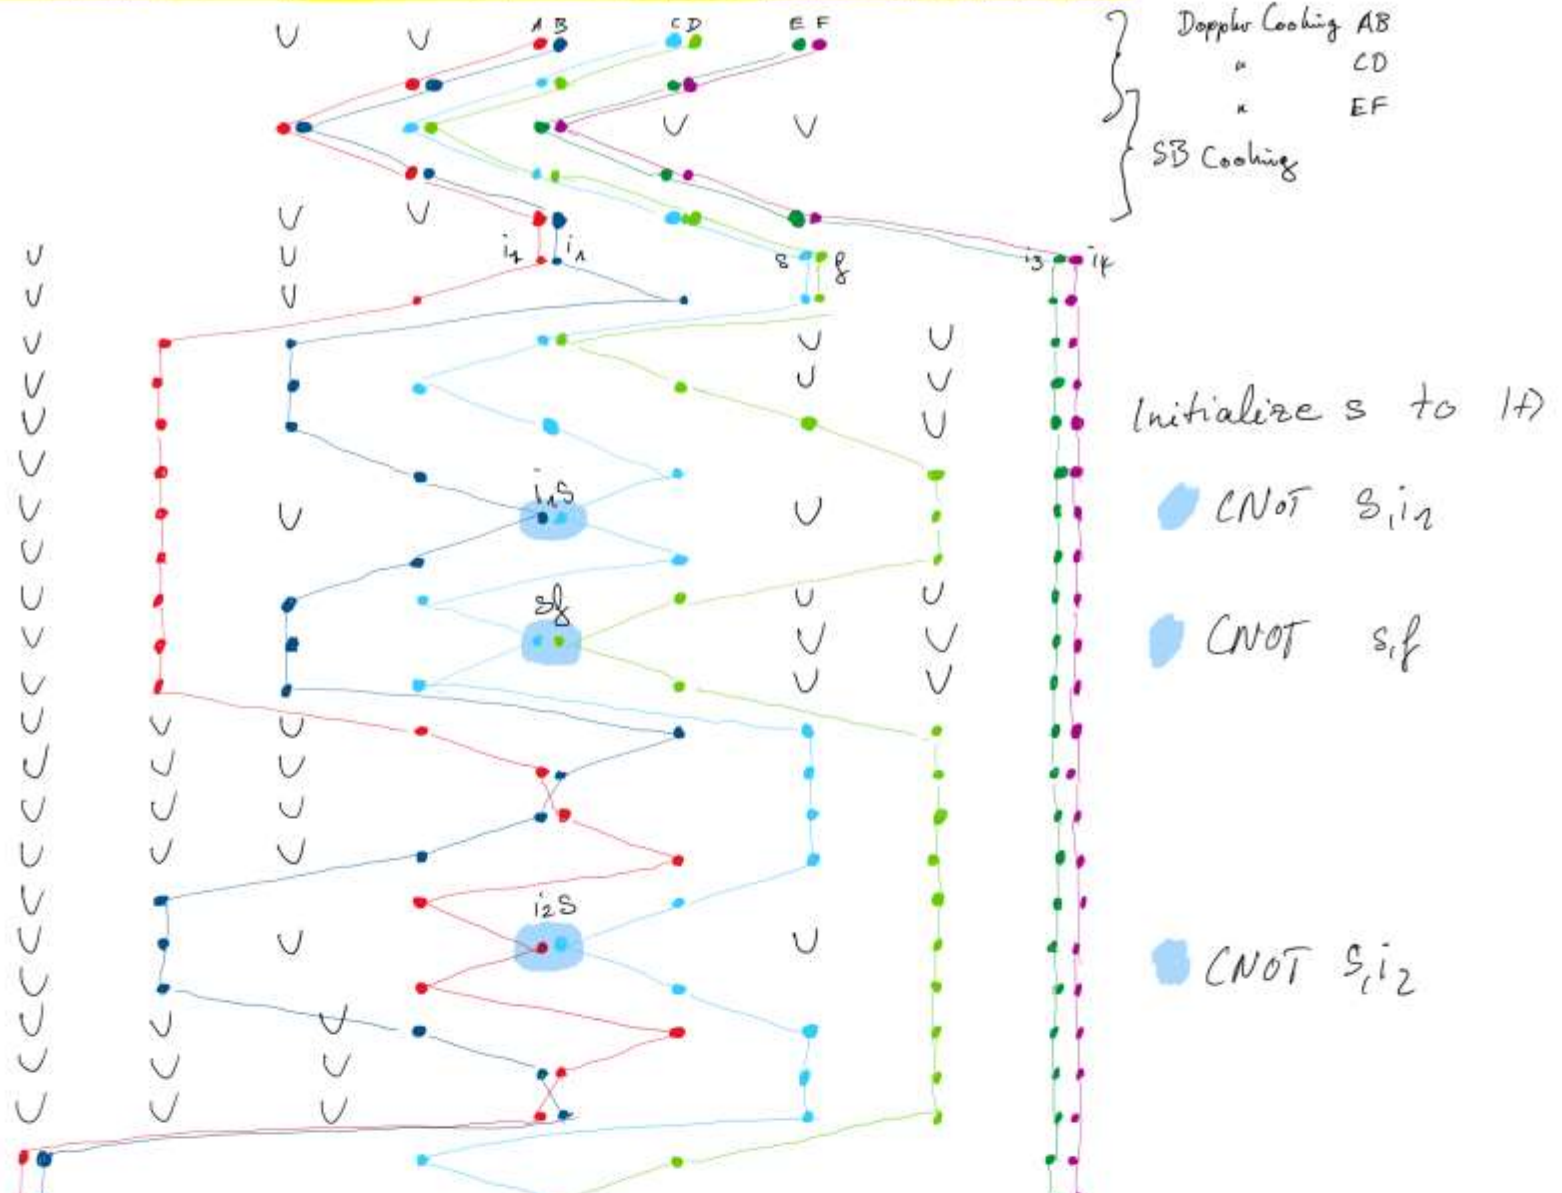 A B C D E F
Doppler Cooling AB
" CD
" EF
SB Cooling
i2 i1 s f i3 i4
Initialize s to |+⟩
i1 s
CNOT s,i1
sf
CNOT s,f
i2 s
CNOT s,i2